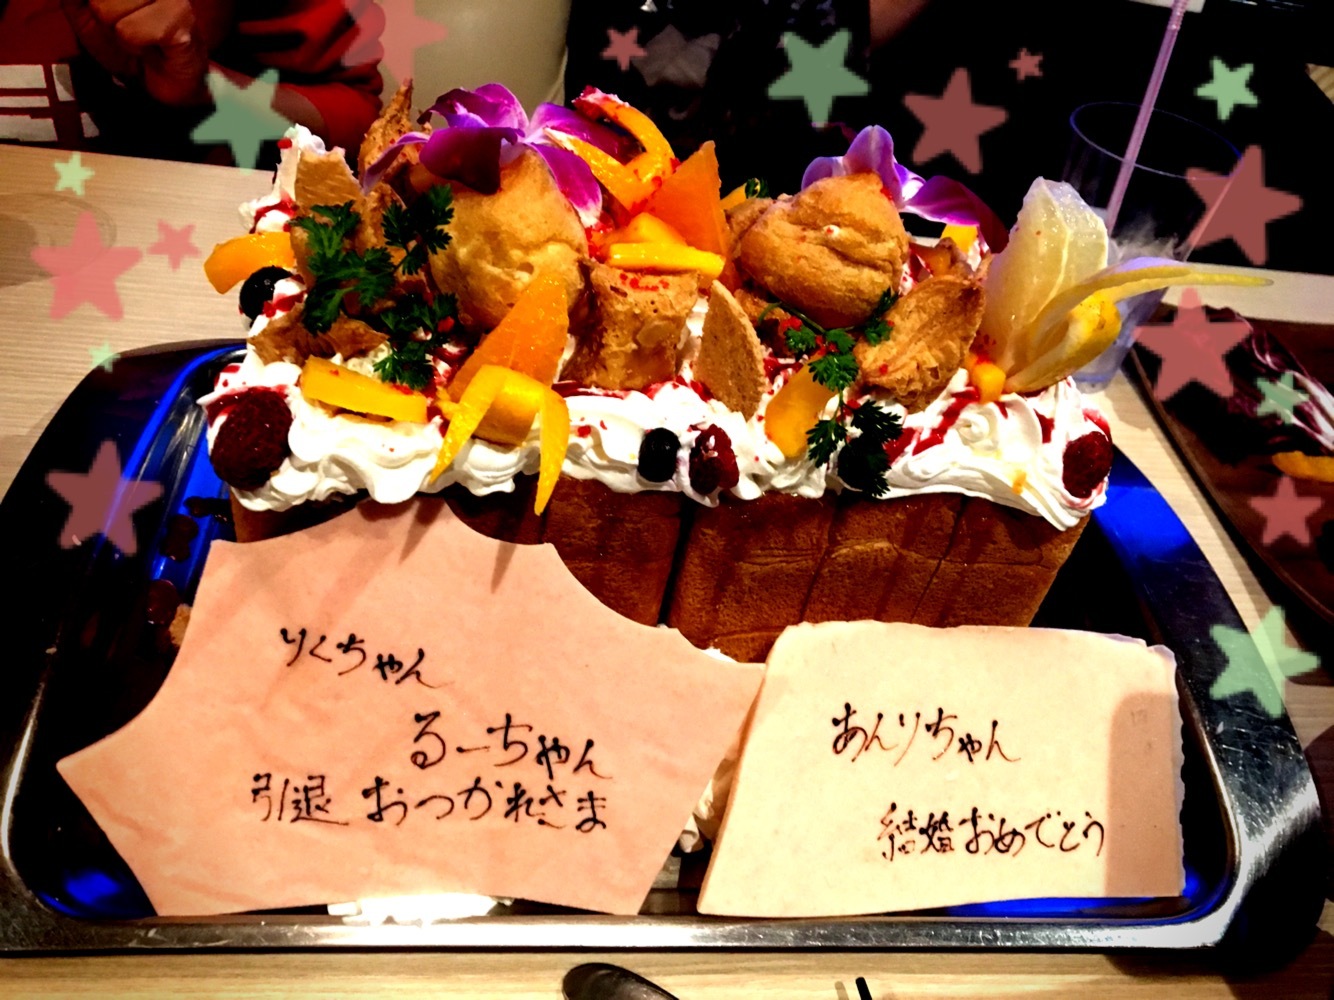 りくちゃん
るーちゃん
引退 おつかれさま
あんりちゃん
結婚おめでとう